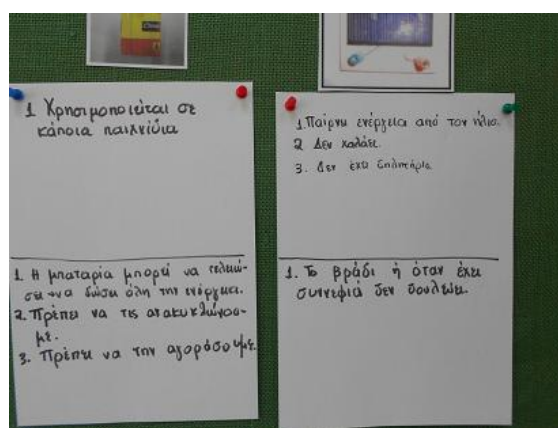 1 Χρησιμοποιείται σε
κάποια παιχνίδια
1. Η μπαταρία μπορεί να τελειώ-
σει να δώσει όλη την ενέργεια.
2. Πρέπει να τις ανακυκλώνοσ-
με.
3. Πρέπει να την αγοράσουμε.
1. Παίρνει ενέργεια από τον ήλιο.
2 Δεν χαλάει.
3. Δεν έχει δηλητήρια
1. Το βράδι ή όταν έχει
συννεφιά δεν δουλεύει.